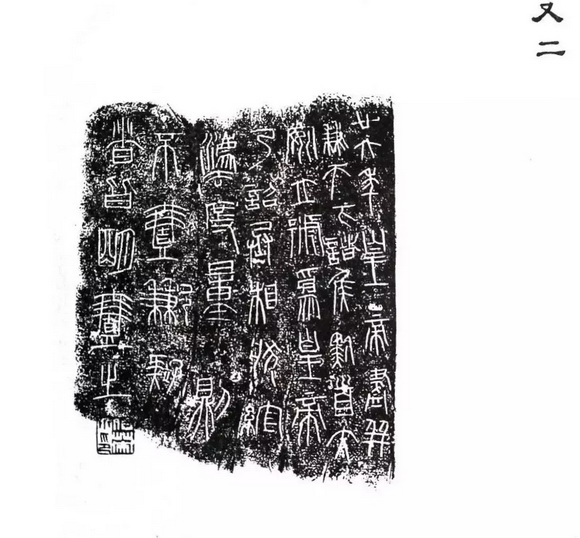 又二
廿六年皇帝盡并
兼天下諸侯黔首大
安立號為皇帝
乃詔丞相狀綰
灋度量則
不壹歉疑
者皆明壹之